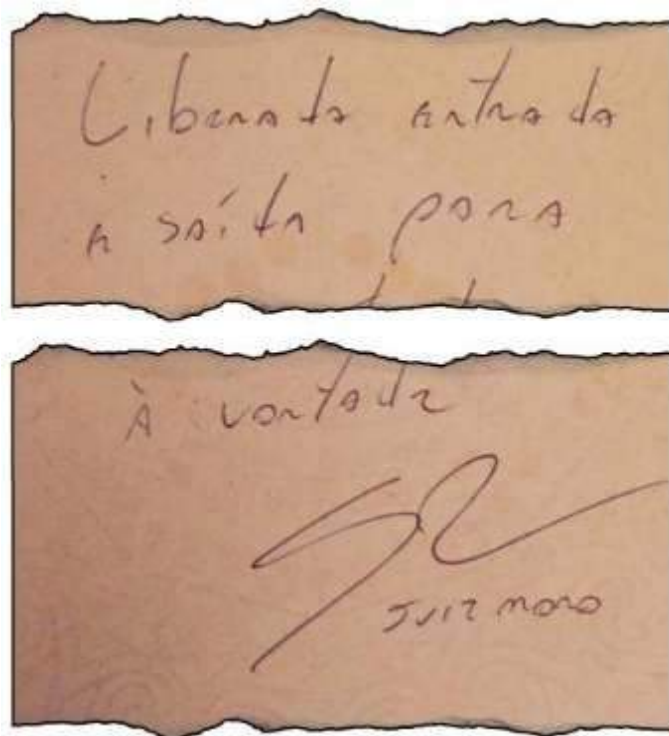 Liberada entrada
e saída para
À vontade
Juiz Moro